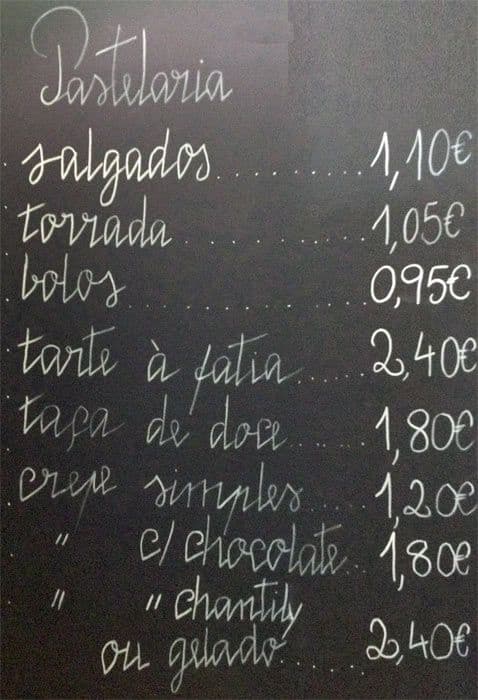 Pastelaria
salgados..........1,10€
torrada..........1,05€
bolos..........0,95€
tarte à fatia.....2,40€
taça de doce.....1,80€
crepe simples....1,20€
" c/ chocolate..1,80€
" " chantily
ou gelado......2,40€